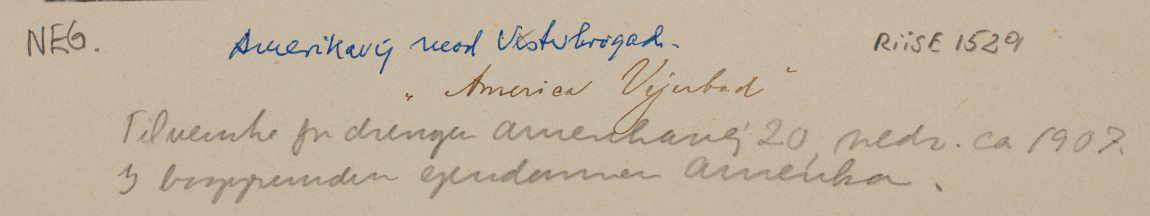 NEG. Amerikavej mod Vesterbrogade. RiiSE 1529
"America Vejerbod"
for drengen Amerikavej 20 nedr. ca 1907.
I baggrunden ejendommen Amerika.